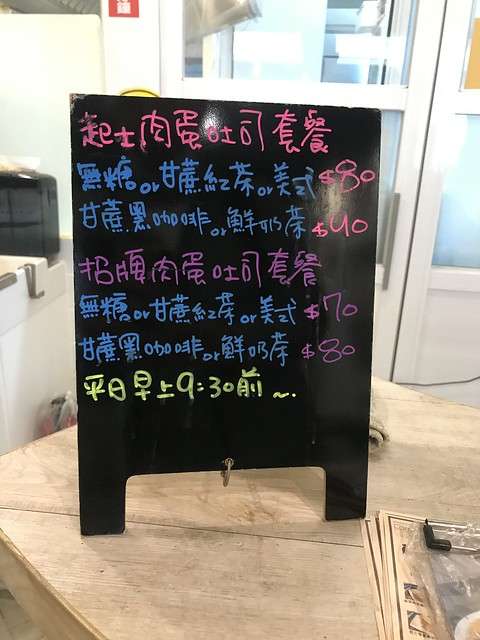 起士肉蛋吐司套餐
無糖or甘蔗紅茶or美式 $80
甘蔗黑咖啡or鮮奶茶 $90
招牌肉蛋吐司套餐
無糖or甘蔗紅茶or美式 $70
甘蔗黑咖啡or鮮奶茶 $80
平日早上9:30前~.